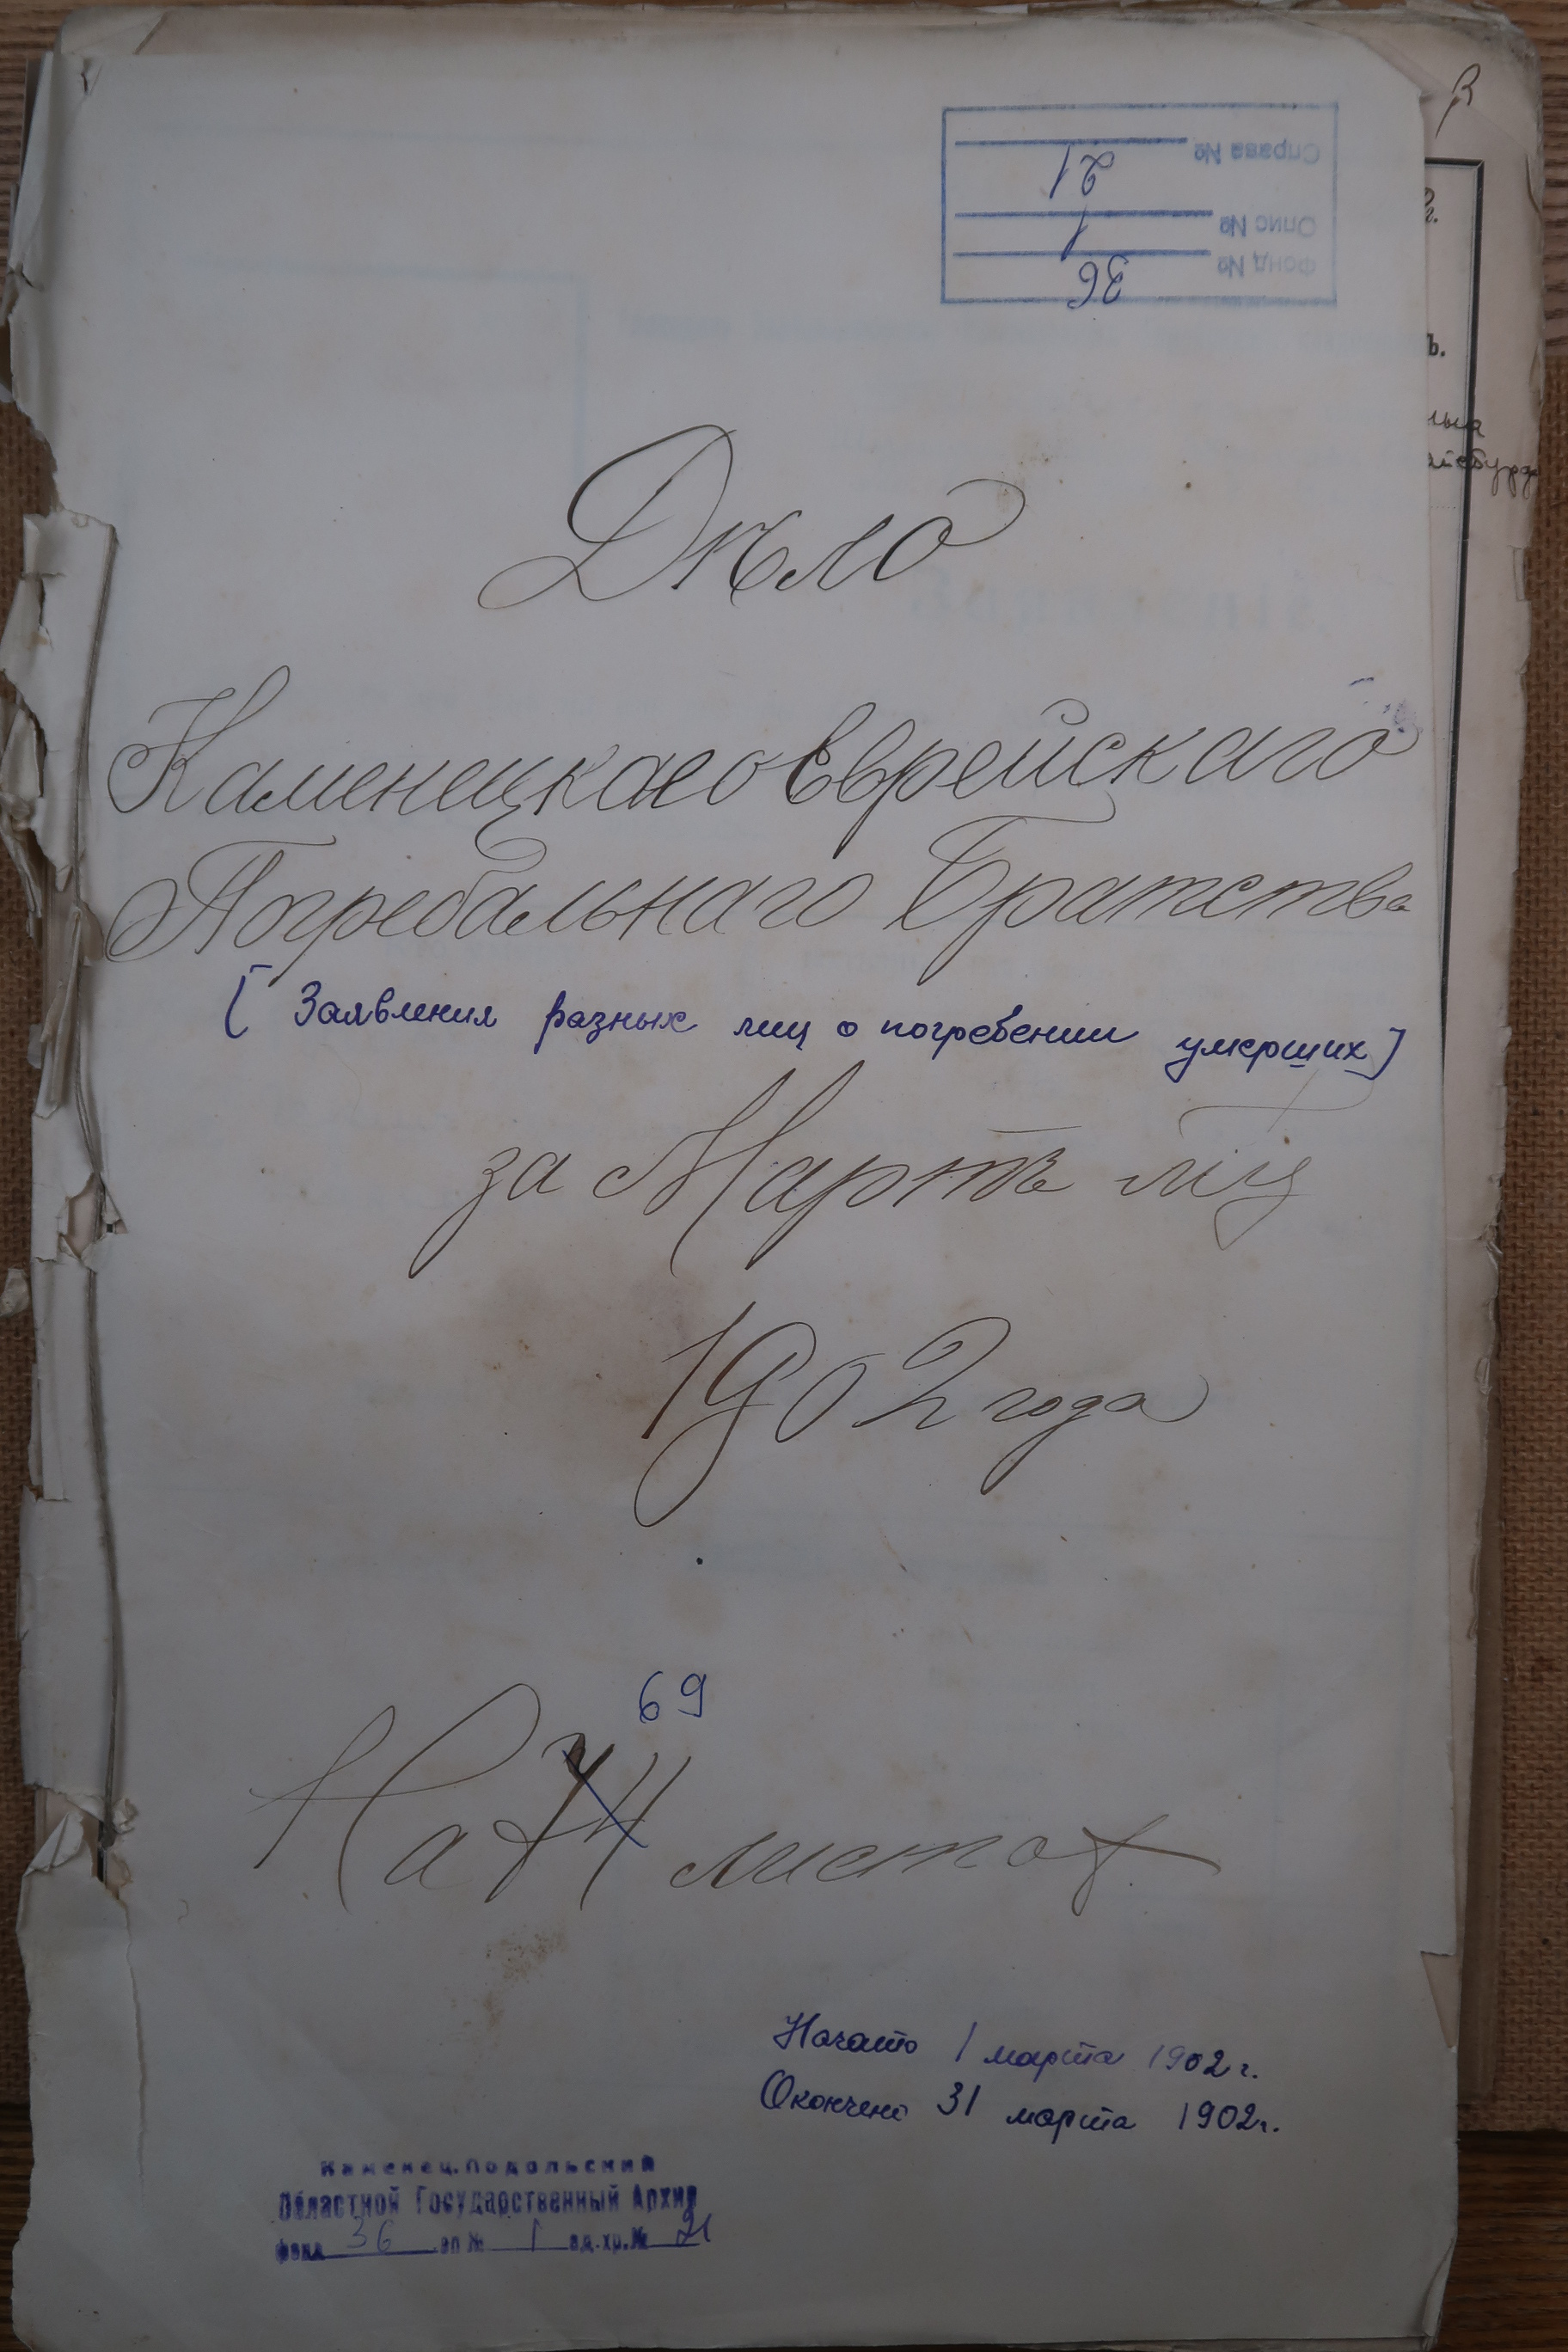 Фонд № 36
Опис № 1
Справа № 21
Дѣло
Каменецкаго Еврейскаго
Погребальнаго Братства
[Заявления разных лиц о погребении умерших]
за Мартъ м-ц
1902 года
69
На листах
Начато 1 марта 1902 г.
Окончено 31 марта 1902 г.
Каменец-Подольский
Областной Государственный Архив
фонд 36 оп № 1 ед. хр. № 21